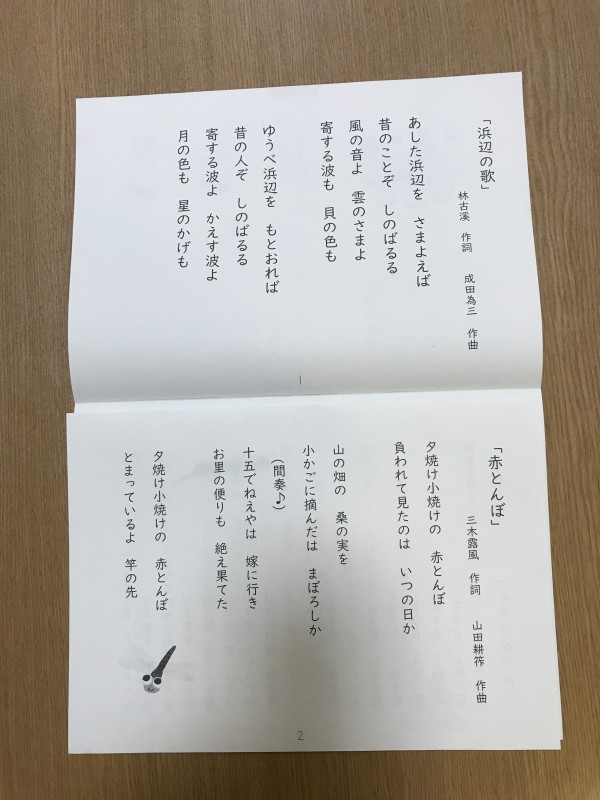 「浜辺の歌」
林古溪 作詞 成田為三 作曲
あした浜辺を さまよえば
昔のことぞ しのばるる
風の音よ 雲のさまよ
寄する波も 貝の色も
ゆうべ浜辺を もとおれば
昔の人ぞ しのばるる
寄する波よ かえす波よ
月の色も 星のかげも
1
「赤とんぼ」
三木露風 作詞 山田耕筰 作曲
夕焼け小焼けの 赤とんぼ
負われて見たのは いつの日か
山の畑の 桑の実を
小かごに摘んだは まぼろしか
(間奏♪)
十五でねえやは 嫁に行き
お里の便りも 絶え果てた
夕焼け小焼けの 赤とんぼ
とまっているよ 竿の先
2